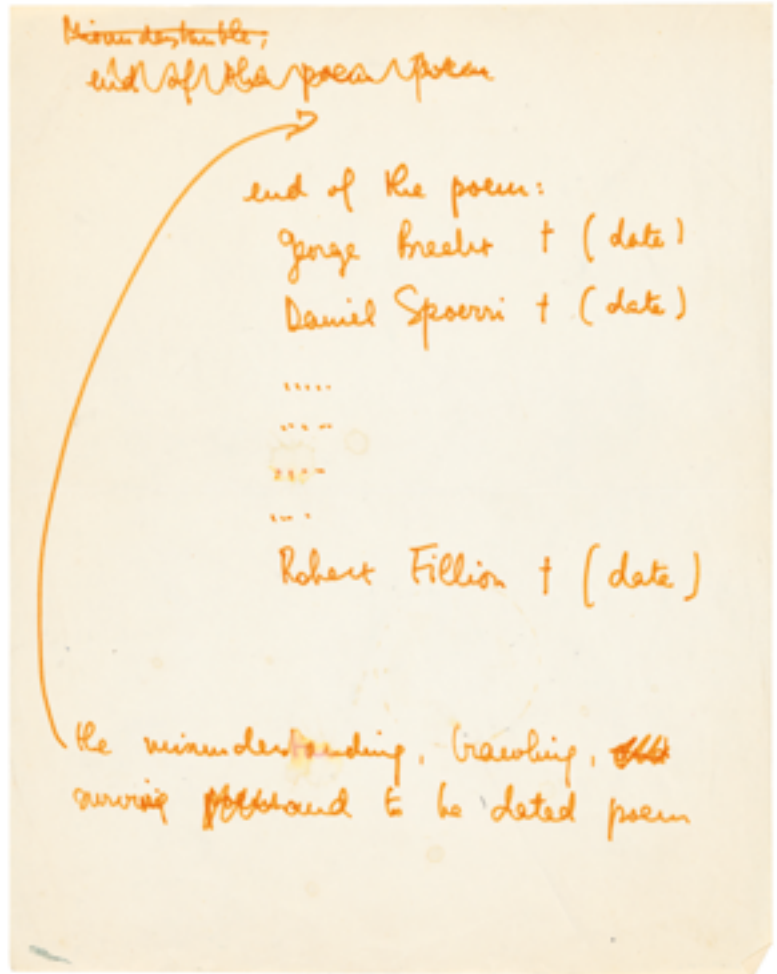 end of the poem poem
end of the poem:
George Brecht † (date)
Daniel Spoerri † (date)
.....
....
....
....
Robert Fillion † (date)
the misunderstanding, brawling,
surviving and to be dated poem